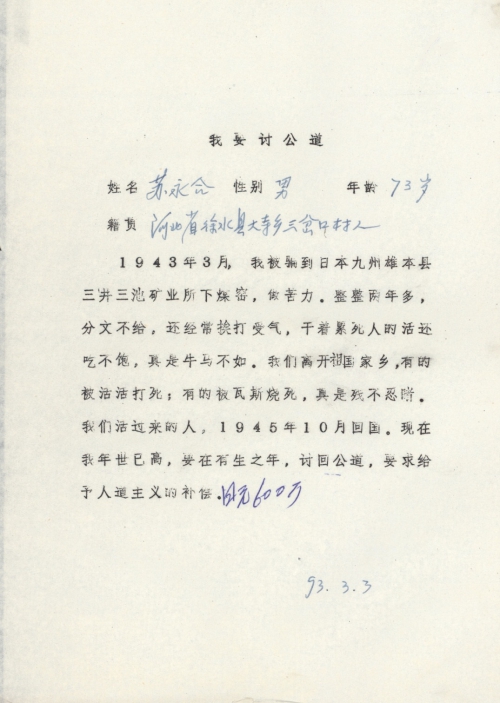 我要讨公道
姓名 苏永合 性别 男 年龄 73岁
籍贯 河北省徐水县大寺乡三岔口村人
1943年3月，我被骗到日本九州雄本县
三井三池矿业所下煤窑，做苦力。整整两年多，
分文不给，还经常挨打受气，干着累死人的活还
吃不饱，真是牛马不如。我们离开祖国家乡，有的
被活活打死；有的被瓦斯烧死，真是残不忍睹。
我们活过来的人，1945年10月回国。现在
我年世已高，要在有生之年，讨回公道，要求给
于人道主义的补偿。日元600万
93.3.3